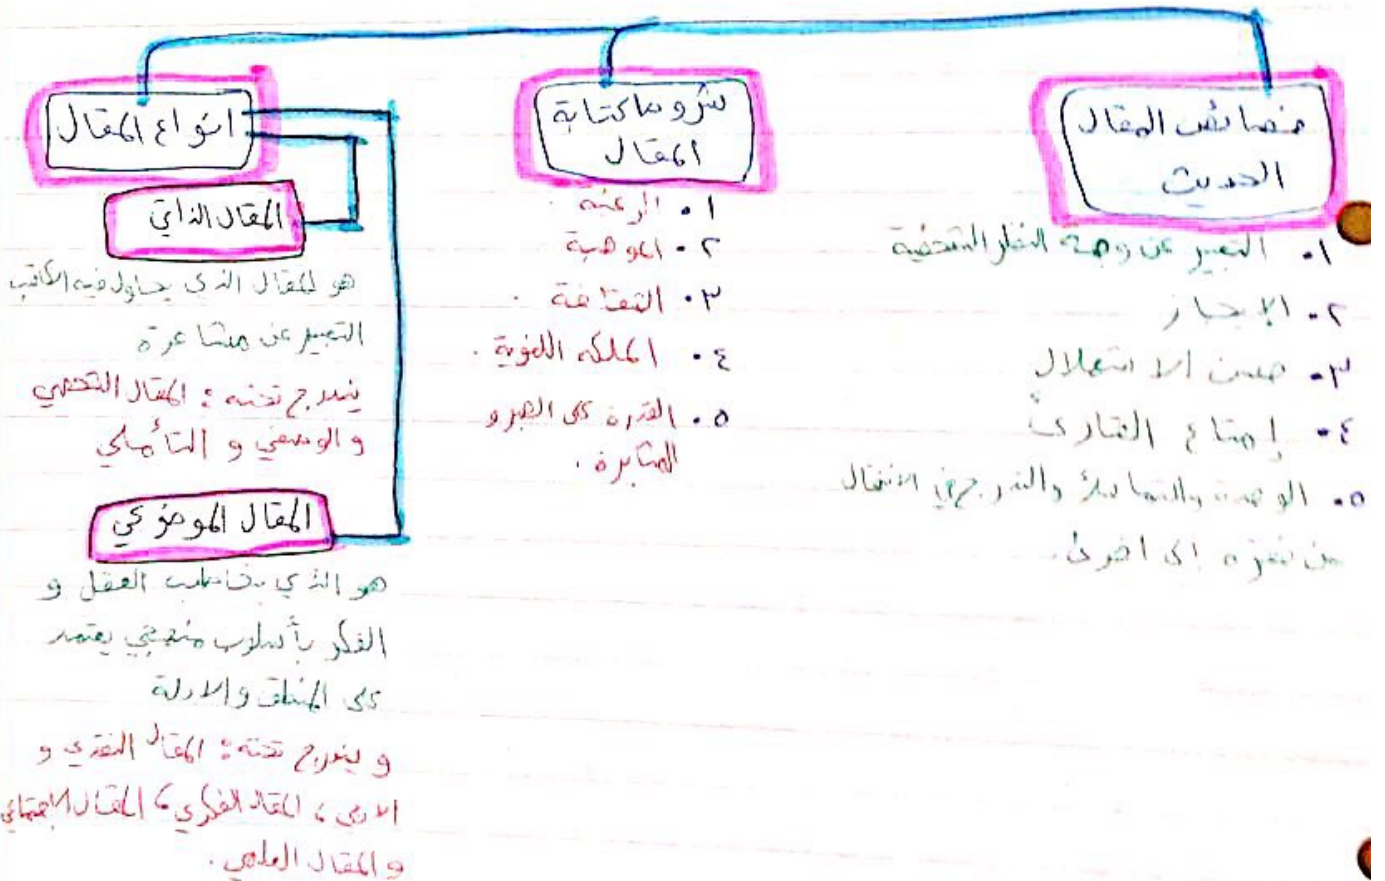 خصائص المقال
الحديث
١. التعبير عن وجهة النظر الشخصية
٢. الإيجاز
٣. حسن الاستهلال
٤. إمتاع القارئ
٥. الوحدة والتماسك والتدرج في الانتقال
من فقرة إلى اخرى.
شروط كتابة
المقال
١. الرغبة.
٢. الموهبة
٣. الثقافة.
٤. الملكه اللغوية.
٥. القدرة على الصبر و
المثابرة.
انواع المقال
المقال الذاتي
هو المقال الذي يحاول فيه الكاتب
التعبير عن مشاعرة
يندرج تحته: المقال الشخصي
و الوصفي و التأملي
المقال الموضوعي
هو الذي يخاطب العقل و
الفكر بأسلوب منهجي يعتمد
على المنطق والادلة
و يندرج تحته: المقال النقدي و
الادبي، المقال الفكري، المقال الاجتماعي
و المقال العلمي.